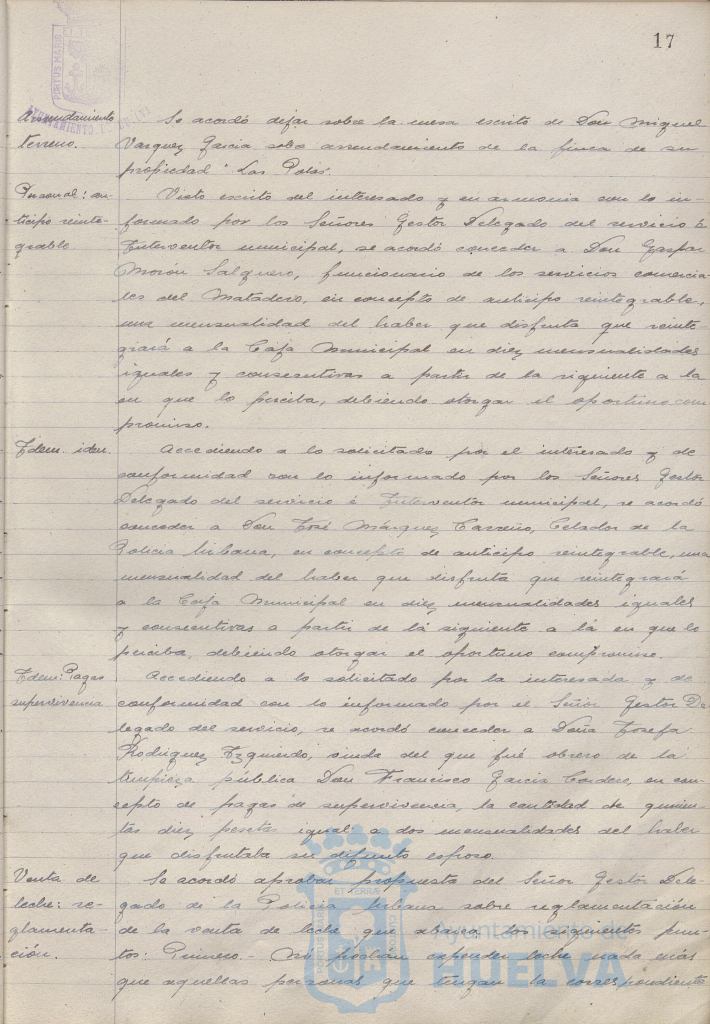 17
PORTUS MARIS
AYUNTAMIENTO
Arrendamiento
terreno.
Se acordó dejar sobre la mesa escrito de Don Miguel
Vazquez Garcia sobre arrendamiento de la finca de su
propiedad "Las Polas".
Personal: an-
ticipo reinte-
grable
Visto escrito del interesado y en armonia con lo in-
formado por los Señores Gestor Delegado del servicio é
Interventor municipal, se acordó conceder a Don Gaspar
Morón Salguero, funcionario de los servicios comercia-
les del Matadero, en concepto de anticipo reintegrable,
una mensualidad del haber que disfruta que reinte-
grará a la Caja Municipal en diez mensualidades
iguales y consecutivas a partir de la siguiente a la
en que lo perciba, debiendo otorgar el oportuno com
promiso.
Idem. iden.
Accediendo a lo solicitado por el interesado y de
conformidad con lo informado por los Señores Gestor
Delegado del servicio é Interventor municipal, se acordó
conceder a Don José Márquez Carreño, Celador de la
Policia Urbana, en concepto de anticipo reintegrable, una
mensualidad del haber que disfruta que reintegrará
a la Caja Municipal en diez mensualidades iguales
y consecutivas a partir de la siguiente a la en que lo
perciba, debiendo otorgar el oportuno compromiso.
Idem: Pagas
supervivencia
Accediendo a lo solicitado por la interesada y de
conformidad con lo informado por el Señor Gestor De
legado del servicio, se acordó conceder a Doña Josefa
Rodriguez Izquierdo, viuda del que fué obrero de la
limpieza pública Don Francisco Garcia Cordero, en con-
cepto de pagas de supervivencia, la cantidad de quinien-
tas diez pesetas igual a dos mensualidades del haber
que disfrutaba su difunto esposo.
Venta de
leche: re-
glamenta-
ción.
Se acordó aprobar propuesta del Señor Gestor Dele-
gado de la Policia Urbana sobre reglamentación
de la venta de leche que abarca los siguientes pun-
tos: Primero.- No podrán expender leche nada más
que aquellas personas que tengan la correspondiente
PORTUS MARIS ET TERRAE CUSTODIA
Ayuntamiento de
HUELVA